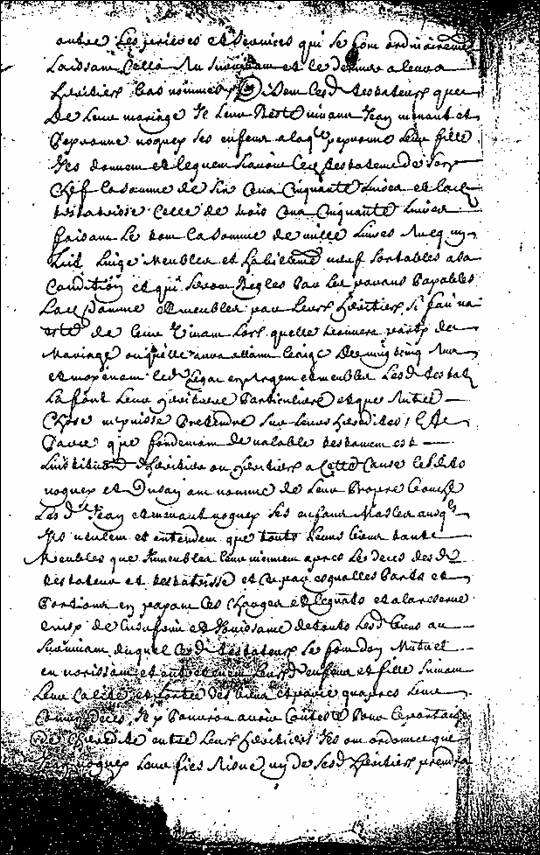 outre Les prieres et services qui se font ordinairement
Laissant Cella Au survivant et le dernier a leurs
heritiers bas nommes Dem Lesd testateurs que
De Leur mariage Il Leur Reste vivans Jean menant et
peyronne noquex ses enfens a laq peyronne Leur fille
Ils donnent et leguent scavoir led testateur de son
Chef la somme de six Cens Cinquante Livres et lad
testatrisse Celle de trois Cens Cinquante Livres
faisant Le tout La somme de mille Livres Avec un
Lict Linge Meubles et habits neuf sortables a sa
Condition et qui seront Regles par Les parans
Lad somme et meubles par Leurs heritiers si fait na
esté de Leur vivant Lors quelle viendra party de
Mariage ou quelle aura attaint Leage De vingt cinq Ans
et moyenant led Legat en argent et meubles Lesd testat
La font Leur heritiere Particuliere et que Autre
Chose ne puisse Pretendre Sur Leurs heredites Et
Parce que fondement de valable testament est
Linstitution dheritier ou heritiers a Cette Cause lesd
noquex et Dusay ont nomme de Leur Propre bouche
Les d Jean et menant noquex ses enfans Masles ausq
Ils veulent et entendent que touts Leurs biens tant
Meubles que Immeubles Leur viennent apres Le deces desd
testateur et testatrisse et Ce par esgualles Parts et
Portions en payant Les Charges et Legats et a la reserve
de Lusufruit et Jouissance de touts Lesd biens au
Survivant duquel Lesd testateurs se font don Mutuel
en norissant et entretenent Leursd enfens et fille suivant
Leur Calité et portée des biens et parce quapres Leur
deces Il y Pourroit avoir Conteste Pour Le partage
De Lheredité entre Leurs heritiers Ils ont ordonné que
noquex Leur fils Aisne un de Sesd heritiers prendra